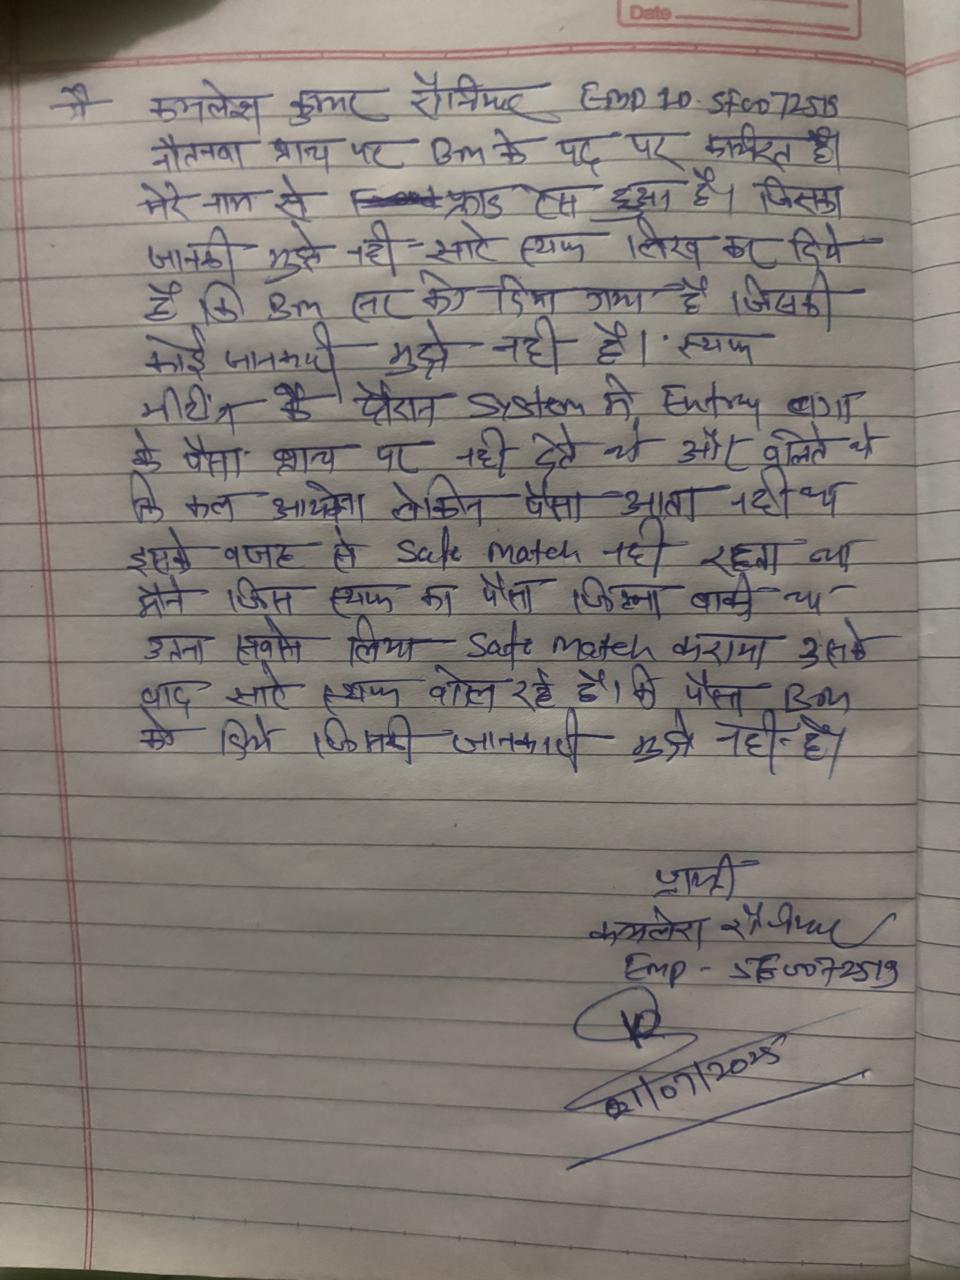 Date
मै कमलेश कुमार रौनियार Emp ID. SF0072519
नौतनवा ब्रान्च पर Bm के पद पर कार्यरत है।
मेरे नाम से फ्राड हुआ है। जिसका
जानकी मुझे नही सारे स्थाफ लिख कर दिये
है कि Bm सर को दिया गया है जिसकी
कोई जानकारी मुझे नही है। स्थाफ
मीटींग के दौरान System मे Entry बना
के पैसा ब्रान्च पर नही देते थे और बोलते थे
कि कल आयेगा लेकिन पैसा आता नही था
इसके वजह से Safe match नही रहता था
मैने जिस स्थाफ का पैसा जितना बाकी था
उतना सबसे लिया Safe match कराया उसके
बाद सारे स्थाफ बोल रहे है। कि पैसा Bm
को दिये जिसकी जानकारी मुझे नही है।
प्रार्थी
कमलेश रौनियार
Emp - SF0072519
01/07/2025